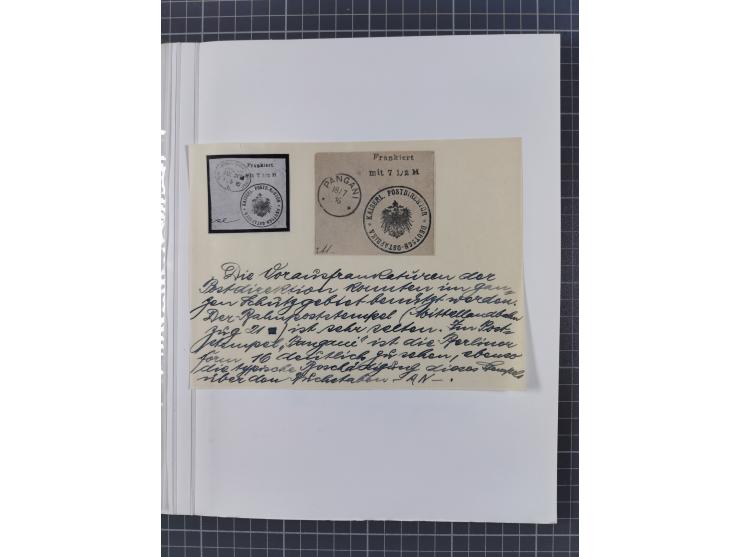 Frankiert
mit 7 1/2 H
Frankiert
mit 7 1/2 H
PANGANI
18/7
16
KAISERL. POSTDIREKTION
DEUTSCH-OSTAFRIKA
KAISERL. POSTDIREKTION
DEUTSCH-OSTAFRIKA
Die Vorausfrankaturen der
Postdirektion konnten im gan-
zen Schutzgebiet benutzt werden.
Der Bahnpoststempel (Mittellandbahn
Zug 21 ■) ist sehr selten. Im Post-
stempel „Pangani" ist die Berliner
Form 16 deutlich zu sehen, ebenso
die typische Beschädigung dieses Stempels
über den Buchstaben - AN -.